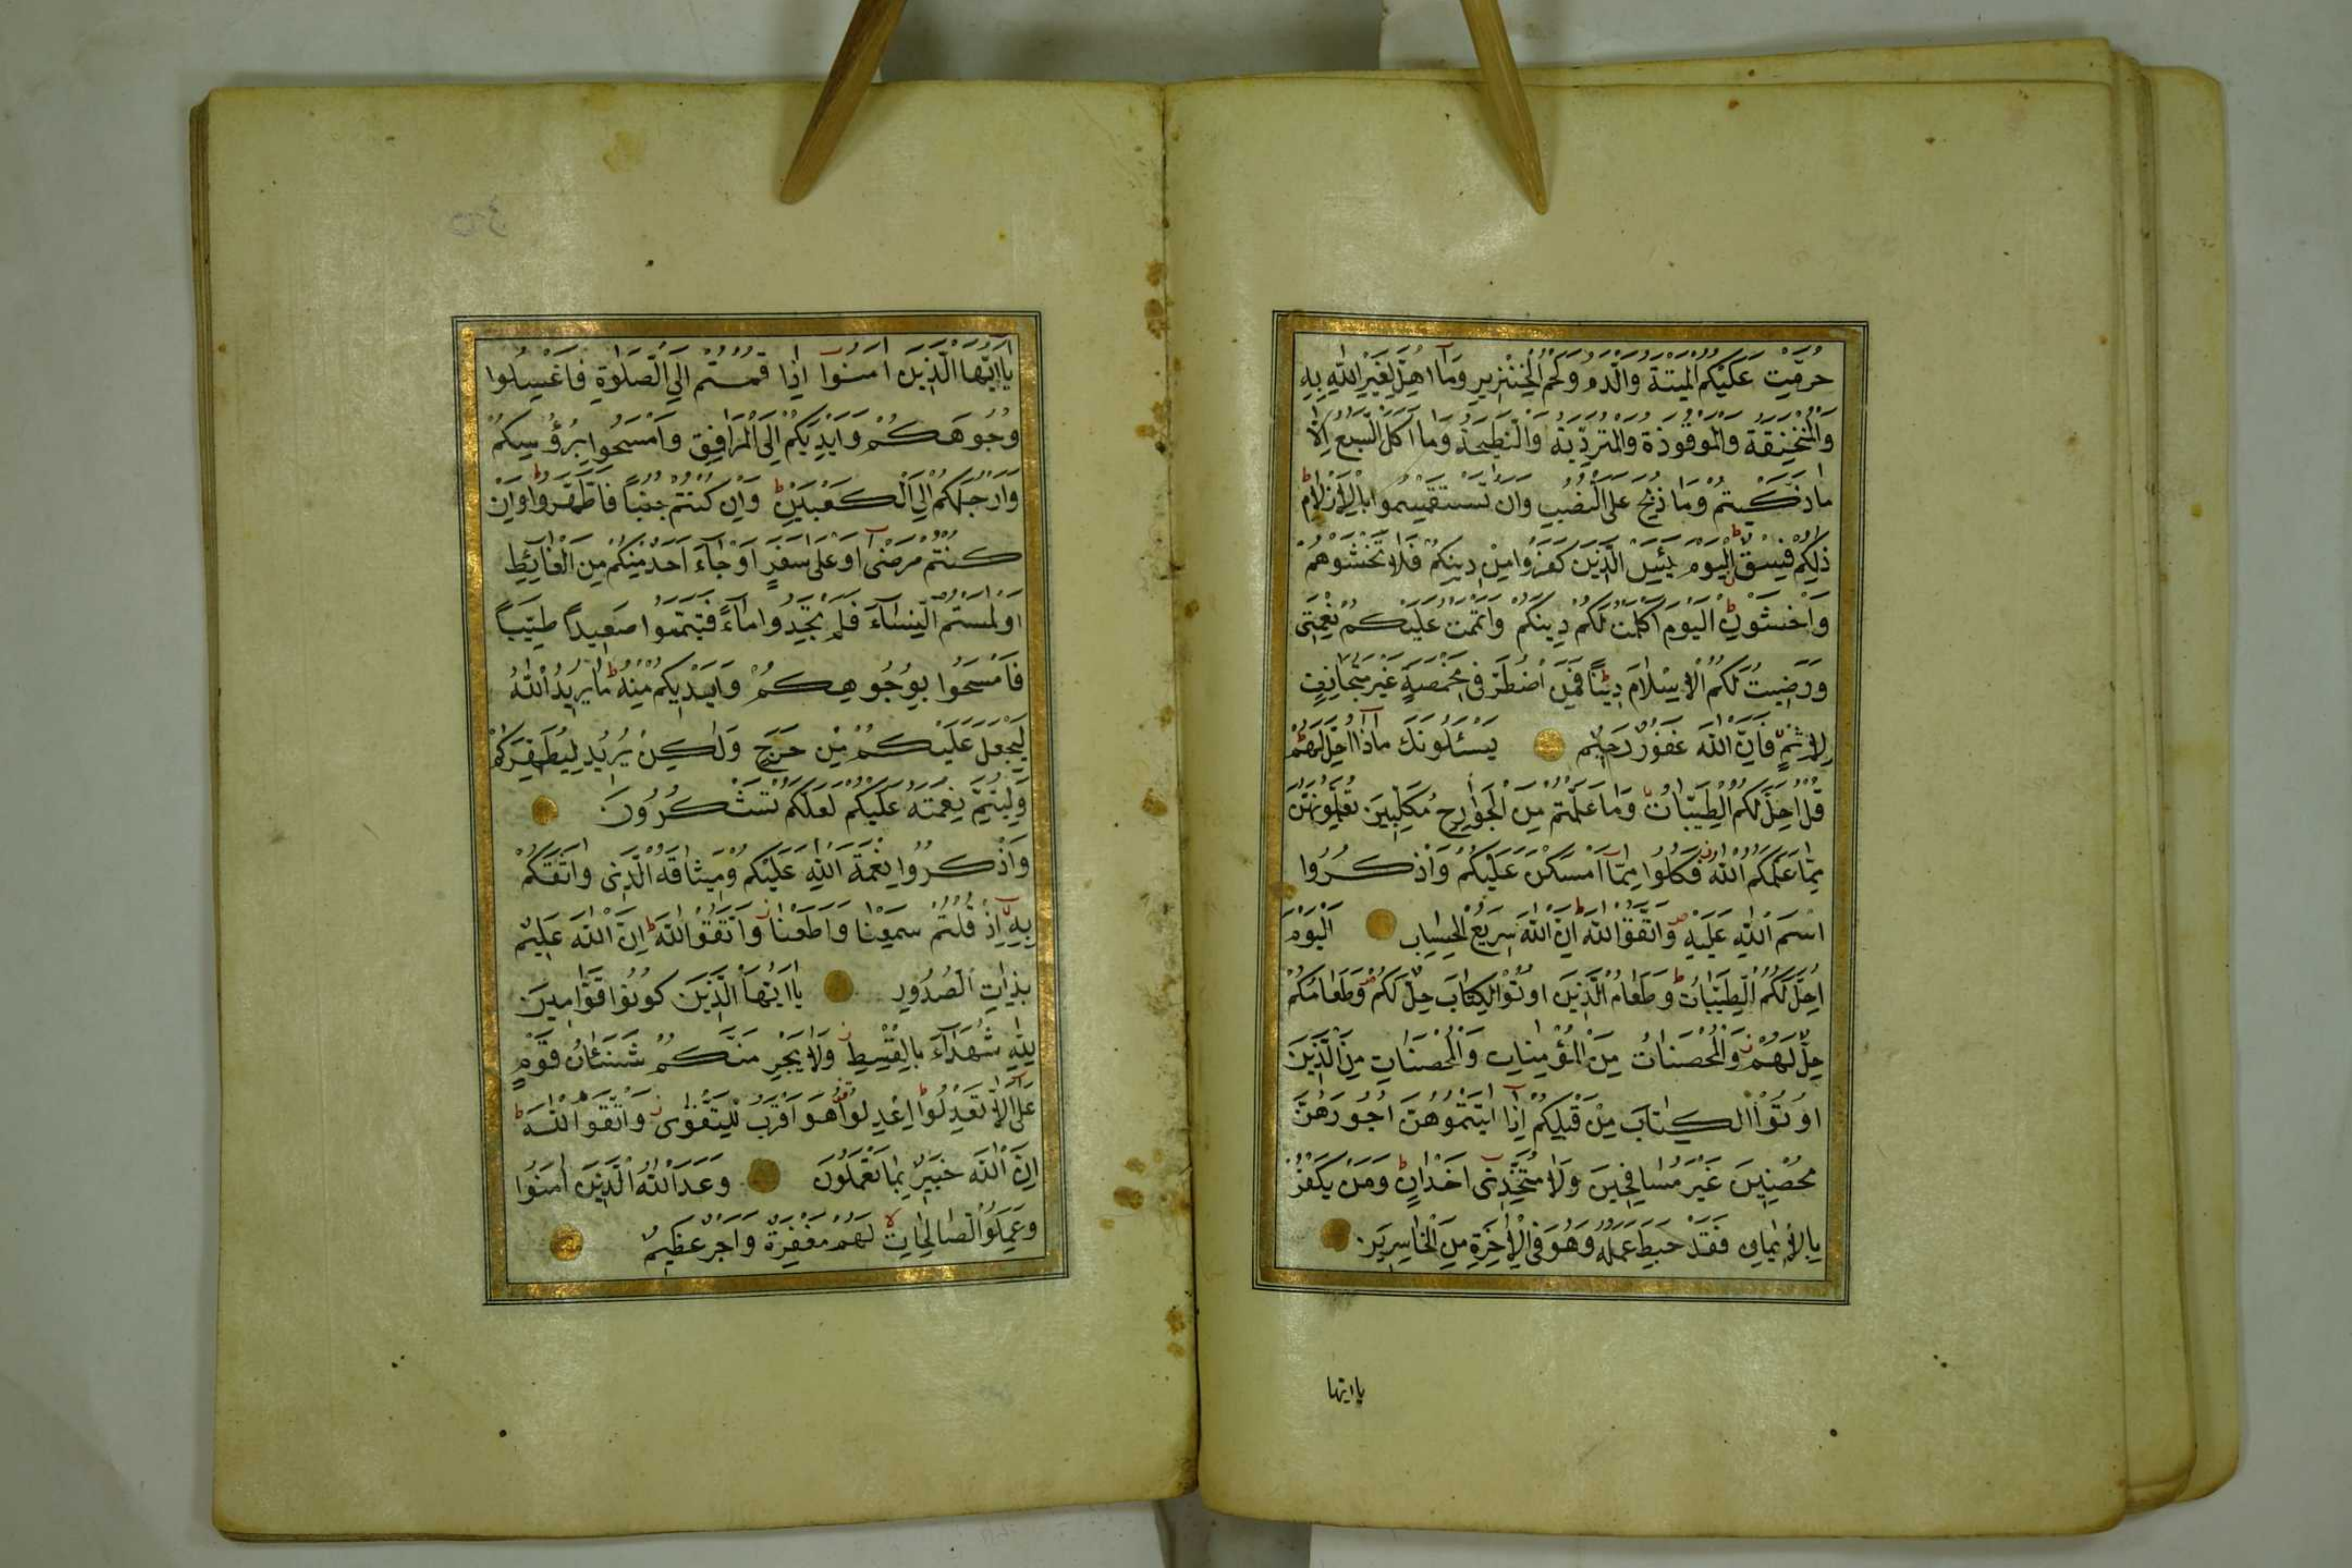 حُرِّمَتْ عَلَيْكُمُ الْمَيْتَةُ وَالدَّمُ وَلَحْمُ الْخِنْزِيرِ وَمَآ اُهِلَّ لِغَيْرِ اللّٰهِ بِهِ
وَالْمُنْخَنِقَةُ وَالْمَوْقُوذَةُ وَالْمُتَرَدِّيَةُ وَالنَّطِيحَةُ وَمَآ اَكَلَ السَّبُعُ اِلَّا
مَا ذَكَّيْتُمْ وَمَا ذُبِحَ عَلَى النُّصُبِ وَاَنْ تَسْتَقْسِمُوا بِالْاَزْلَامِ ط
ذٰلِكُمْ فِسْقٌ ط اَلْيَوْمَ يَئِسَ الَّذِينَ كَفَرُوا مِنْ دِينِكُمْ فَلَا تَخْشَوْهُمْ
وَاخْشَوْنِ ط اَلْيَوْمَ اَكْمَلْتُ لَكُمْ دِينَكُمْ وَاَتْمَمْتُ عَلَيْكُمْ نِعْمَتِى
وَرَضِيتُ لَكُمُ الْاِسْلَامَ دِينًا ط فَمَنِ اضْطُرَّ فِى مَخْمَصَةٍ غَيْرَ مُتَجَانِفٍ
لِاِثْمٍ فَاِنَّ اللّٰهَ غَفُورٌ رَحِيمٌ يَسْئَلُونَكَ مَاذَآ اُحِلَّ لَهُمْ ط
قُلْ اُحِلَّ لَكُمُ الطَّيِّبَاتُ وَمَا عَلَّمْتُمْ مِنَ الْجَوَارِحِ مُكَلِّبِينَ تُعَلِّمُونَهُنَّ
مِمَّا عَلَّمَكُمُ اللّٰهُ فَكُلُوا مِمَّآ اَمْسَكْنَ عَلَيْكُمْ وَاذْكُرُوا
اسْمَ اللّٰهِ عَلَيْهِ ص وَاتَّقُوا اللّٰهَ ط اِنَّ اللّٰهَ سَرِيعُ الْحِسَابِ اَلْيَوْمَ
اُحِلَّ لَكُمُ الطَّيِّبَاتُ ط وَطَعَامُ الَّذِينَ اُوتُوا الْكِتَابَ حِلٌّ لَكُمْ ص وَطَعَامُكُمْ
حِلٌّ لَهُمْ ز وَالْمُحْصَنَاتُ مِنَ الْمُؤْمِنَاتِ وَالْمُحْصَنَاتُ مِنَ الَّذِينَ
اُوتُوا الْكِتَابَ مِنْ قَبْلِكُمْ اِذَآ اٰتَيْتُمُوهُنَّ اُجُورَهُنَّ
مُحْصِنِينَ غَيْرَ مُسَافِحِينَ وَلَا مُتَّخِذِٓى اَخْدَانٍ ط وَمَنْ يَكْفُرْ
بِالْاِيمَانِ فَقَدْ حَبِطَ عَمَلُهُ وَهُوَ فِى الْاٰخِرَةِ مِنَ الْخَاسِرِينَ
يا ايها
يَآ اَيُّهَا الَّذِينَ اٰمَنُوآ اِذَا قُمْتُمْ اِلَى الصَّلٰوةِ فَاغْسِلُوا
وُجُوهَكُمْ وَاَيْدِيَكُمْ اِلَى الْمَرَافِقِ وَامْسَحُوا بِرُؤُسِكُمْ
وَاَرْجُلَكُمْ اِلَى الْكَعْبَيْنِ ط وَاِنْ كُنْتُمْ جُنُبًا فَاطَّهَّرُوا ط وَاِنْ
كُنْتُمْ مَرْضٰٓى اَوْ عَلٰى سَفَرٍ اَوْ جَآءَ اَحَدٌ مِنْكُمْ مِنَ الْغَآئِطِ
اَوْ لٰمَسْتُمُ النِّسَآءَ فَلَمْ تَجِدُوا مَآءً فَتَيَمَّمُوا صَعِيدًا طَيِّبًا
فَامْسَحُوا بِوُجُوهِكُمْ وَاَيْدِيكُمْ مِنْهُ ط مَا يُرِيدُ اللّٰهُ
لِيَجْعَلَ عَلَيْكُمْ مِنْ حَرَجٍ وَلٰكِنْ يُرِيدُ لِيُطَهِّرَكُمْ
وَلِيُتِمَّ نِعْمَتَهُ عَلَيْكُمْ لَعَلَّكُمْ تَشْكُرُونَ
وَاذْكُرُوا نِعْمَةَ اللّٰهِ عَلَيْكُمْ وَمِيثَاقَهُ الَّذِى وَاثَقَكُمْ
بِهِٓ اِذْ قُلْتُمْ سَمِعْنَا وَاَطَعْنَا ز وَاتَّقُوا اللّٰهَ ط اِنَّ اللّٰهَ عَلِيمٌ
بِذَاتِ الصُّدُورِ يَآ اَيُّهَا الَّذِينَ اٰمَنُوا كُونُوا قَوَّامِينَ
لِلّٰهِ شُهَدَآءَ بِالْقِسْطِ ز وَلَا يَجْرِمَنَّكُمْ شَنَئَانُ قَوْمٍ
عَلٰٓى اَلَّا تَعْدِلُوا ط اِعْدِلُوا هُوَ اَقْرَبُ لِلتَّقْوٰى ز وَاتَّقُوا اللّٰهَ ط
اِنَّ اللّٰهَ خَبِيرٌ بِمَا تَعْمَلُونَ وَعَدَ اللّٰهُ الَّذِينَ اٰمَنُوا
وَعَمِلُوا الصَّالِحَاتِ لا لَهُمْ مَغْفِرَةٌ وَاَجْرٌ عَظِيمٌ